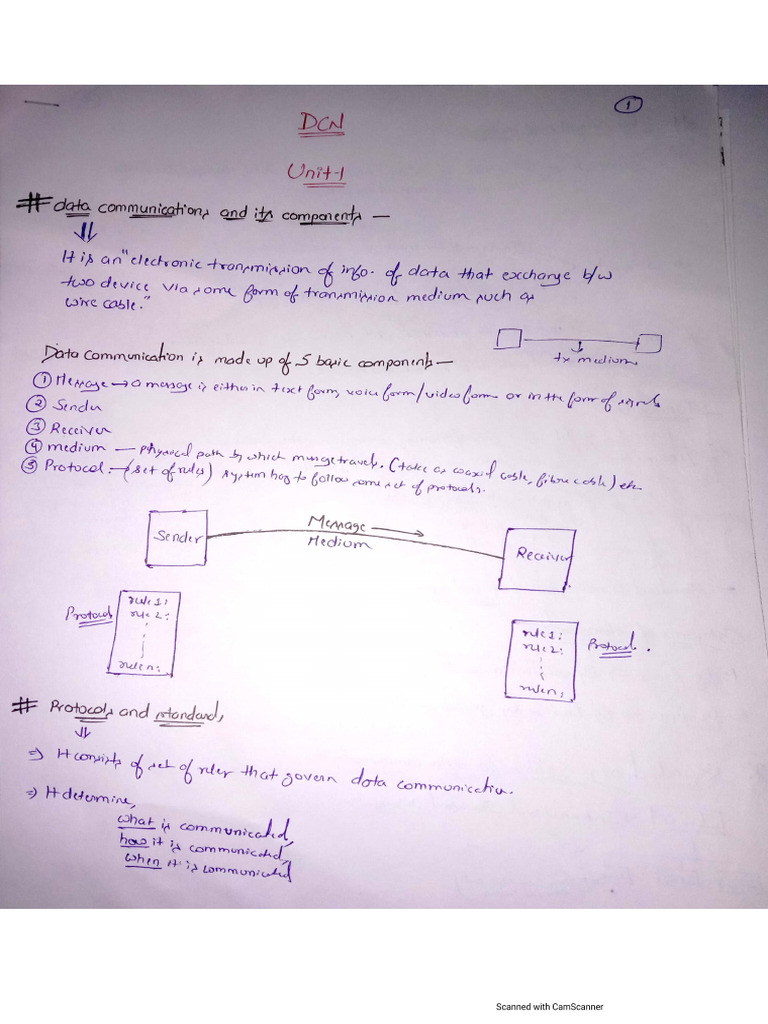 1
DCN
Unit-1
# data communications and its components —
It is an "electronic transmission of info. of data that exchange b/w
two device via some form of transmission medium such as
wire cable."
tx medium
Data communication is made up of 5 basic components —
① Message → a message is either in text form, voice form/video form or in the form of signals
② Sender
③ Receiver
④ medium — physical path by which message travels. (take as coaxial cable, fibre cable) etc
⑤ Protocol :- (set of rules) system has to follow some set of protocols.
Sender
Message →
Medium
Receiver
Protocol
rule 1:
rule 2:
rule n:
rule 1:
rule 2:
rule n:
Protocol.
# Protocols and standards
⇒ It consists of set of rules that govern data communication.
⇒ It determine,
what is communicated,
how it is communicated,
when it is communicated
Scanned with CamScanner